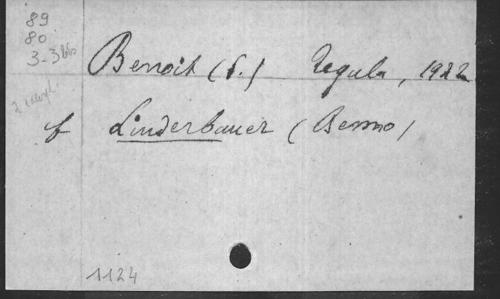 89
80
3-3
Benoit (S.) Regula, 1922
f Linderbauer (Benno)
1124